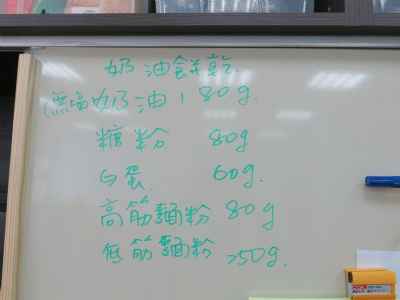 奶油餅乾
無鹽奶油 180g.
糖粉 80g
白蛋 60g.
高筋麵粉 80g
低筋麵粉 250g.